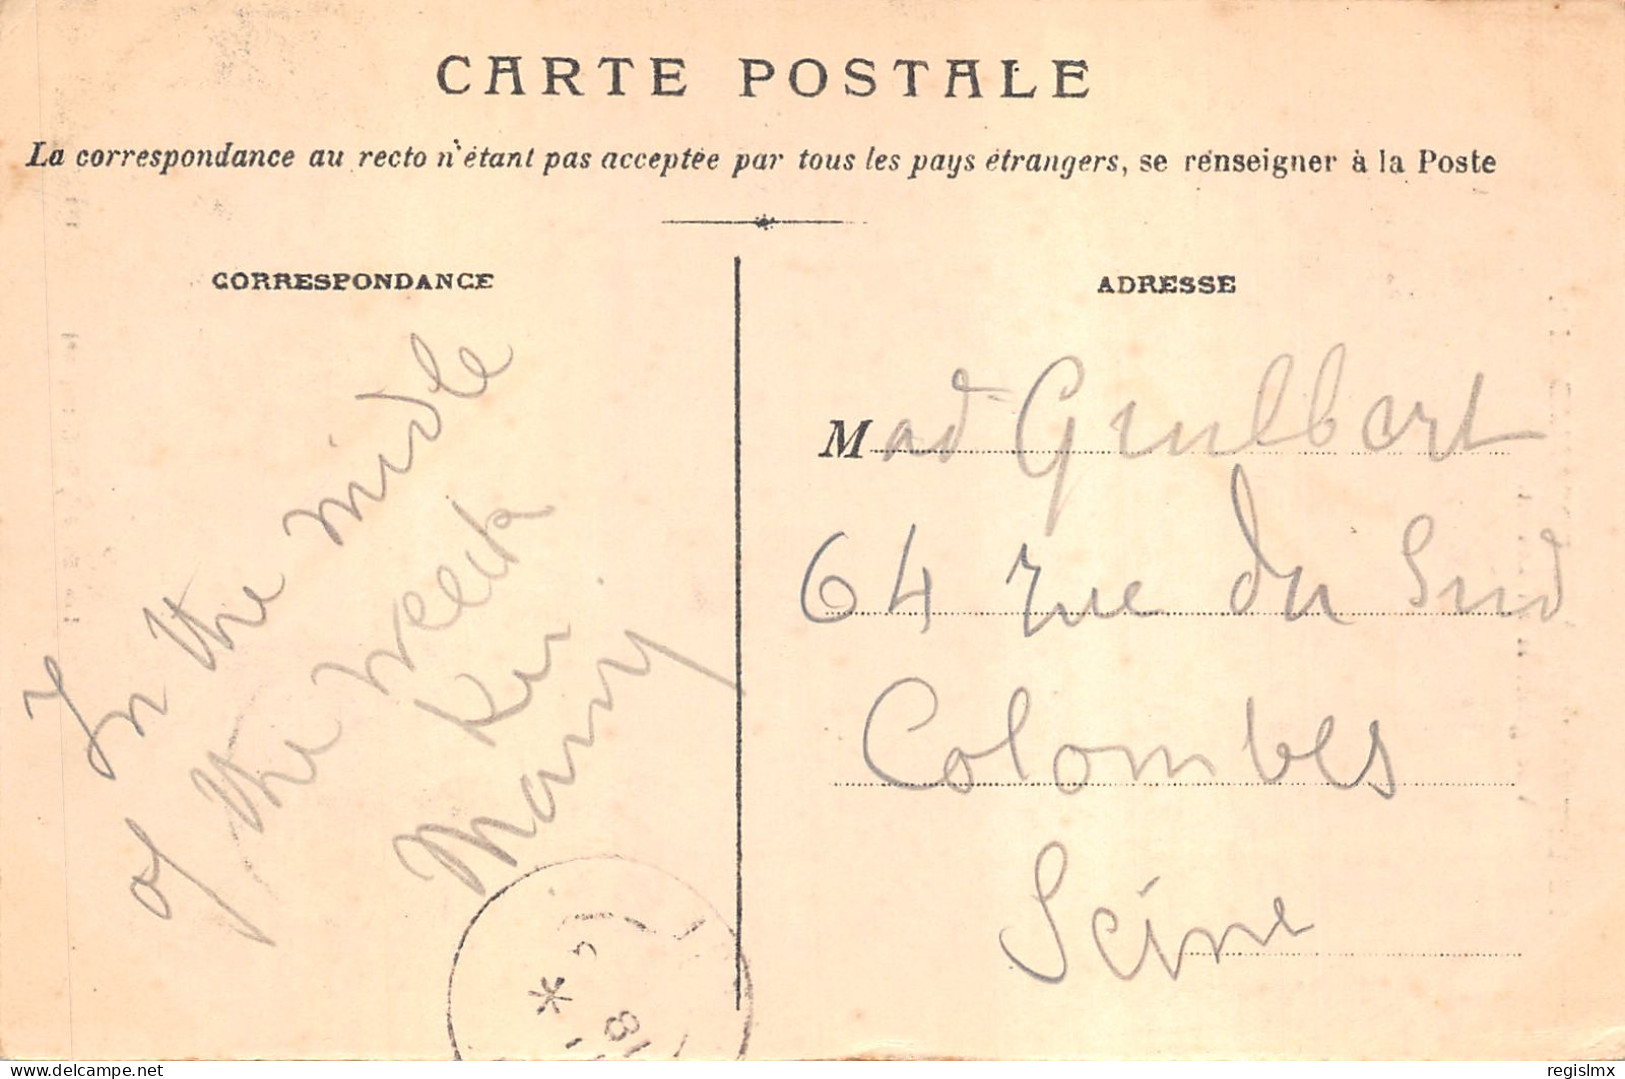 CARTE POSTALE
La correspondance au recto n'étant pas acceptée par tous les pays étrangers, se renseigner à la Poste
CORRESPONDANCE
In the midle
of the week
Marry
ADRESSE
Mad Guilbert
64 rue du Sud
Colombes
Seine
18
delcampe.net
regislmx